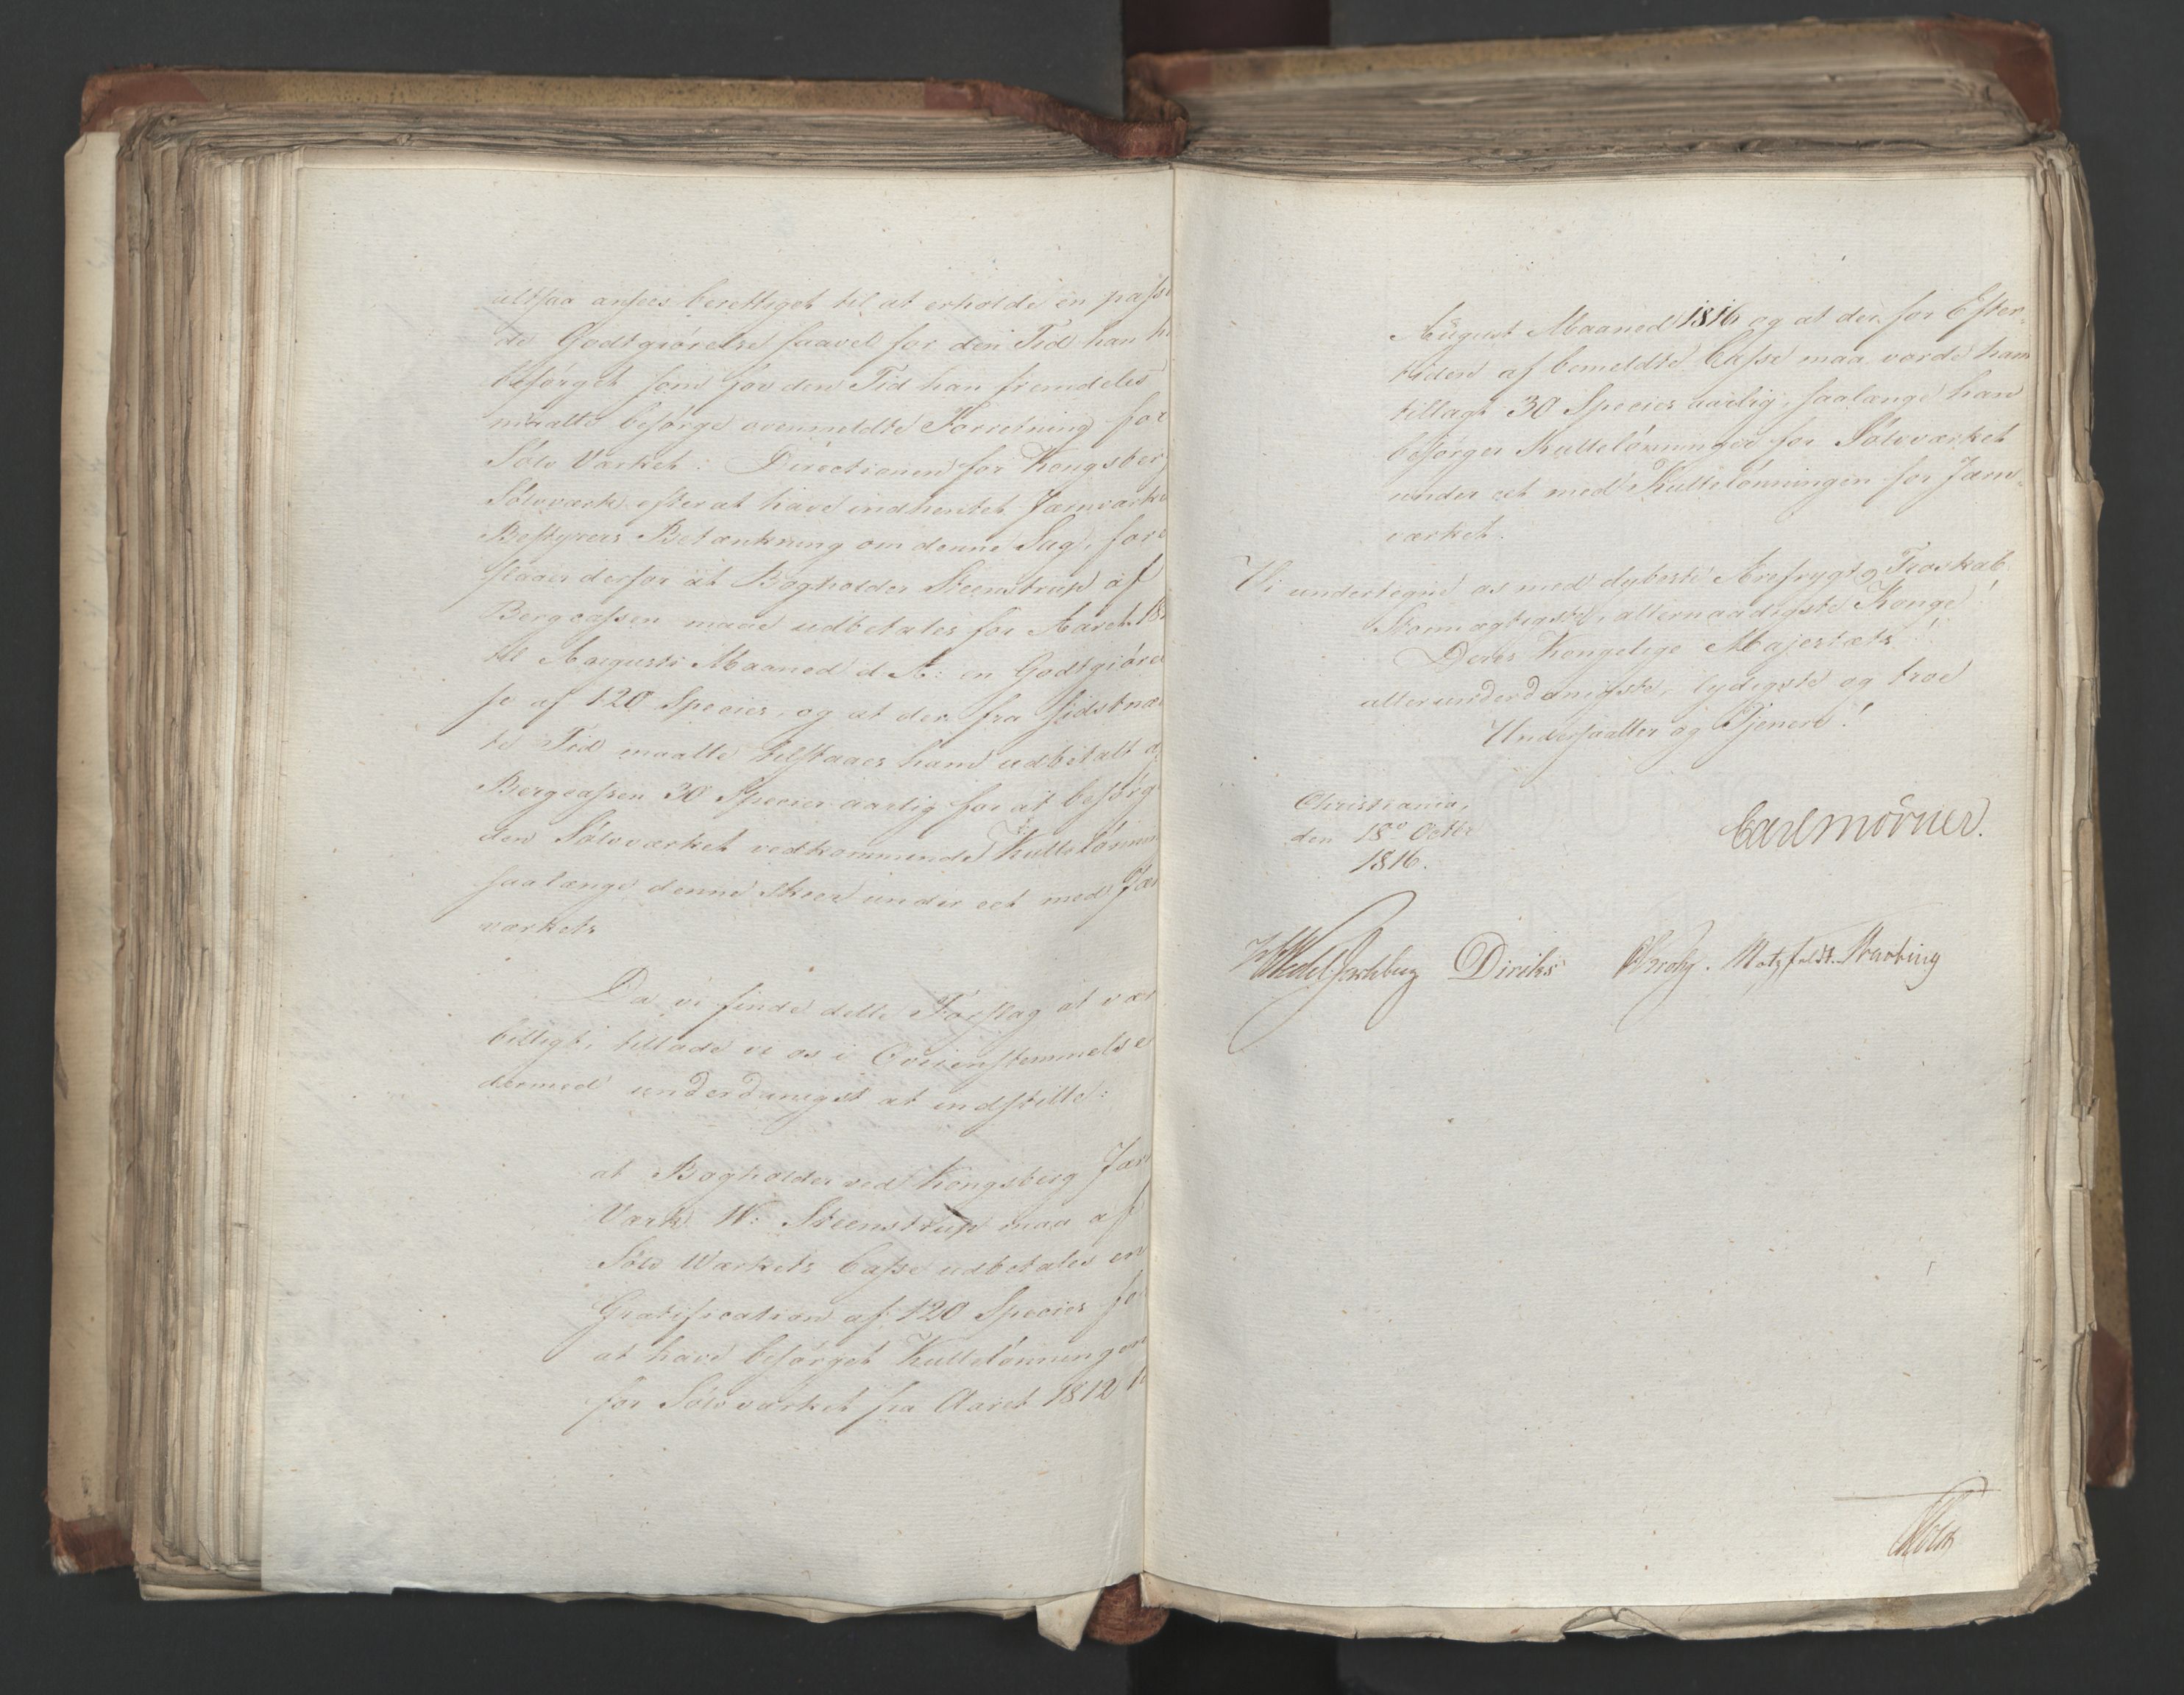 altsaa ansees berettiget til at erholde en passe
de Godtgiörelse saavel for den Tid han h
besörget som for den Tid han fremdeles
maatte besörge ovenmeldte Forretning for
Sölv Værket: Directionen for Kongsber
Sölvværk efter at have indhentet Jærnværke
Bestyrers Betænkning om denne Sag, fore
slaaer derfor at Bogholder Steenstrup af
Bergcassen maae udbetales for Aaret 18
til Augusti Maaned d. A: en Godtgiörel
se af 120 Species, og at der fra sidstnæ
te Tid maatte tilstaaes ham udbetalt a
Bergcassen 30 Species aarlig for at besörg
den Sölvværket vedkommende Kullelönni
saalænge denne skeer under eet med Jær
værkets
Da vi finde dette Forslag at vær
billigt, tillade vi os i Overenstemmelse
dermed underdanigst at indstille:
at Bogholder ved Kongsberg Jær
Værk W: Steenstrup maa af
Sölv Værkets Casse udbetales en
Gratification af 120 Species fo
at have besörget Kullelönningen
for Sölvværket fra Aaret 1812 t
August Maaned 1816 og at der for Efter-
tiden af bemeldte Casse maa vorde ham
tillagt 30 Species aarlig, saalænge han
besörger Kullelönningen for Sölvværket
under eet med Kullelönningen for Jærn-
værket.
Vi undertegne os med dybeste Ærefrygt og Troskab.
Stormægtigste, allernaadigste Konge!
Deres Kongelige Majestæts
allerunderdanigste, lydigste og troe
Undersaatter og Tjenere!
Christiania,
den 18de Octbr
1816.
Carl Mörner.
HWedel Jarlsberg Diriks Krohg. Motzfeldt. Treschow
Holst